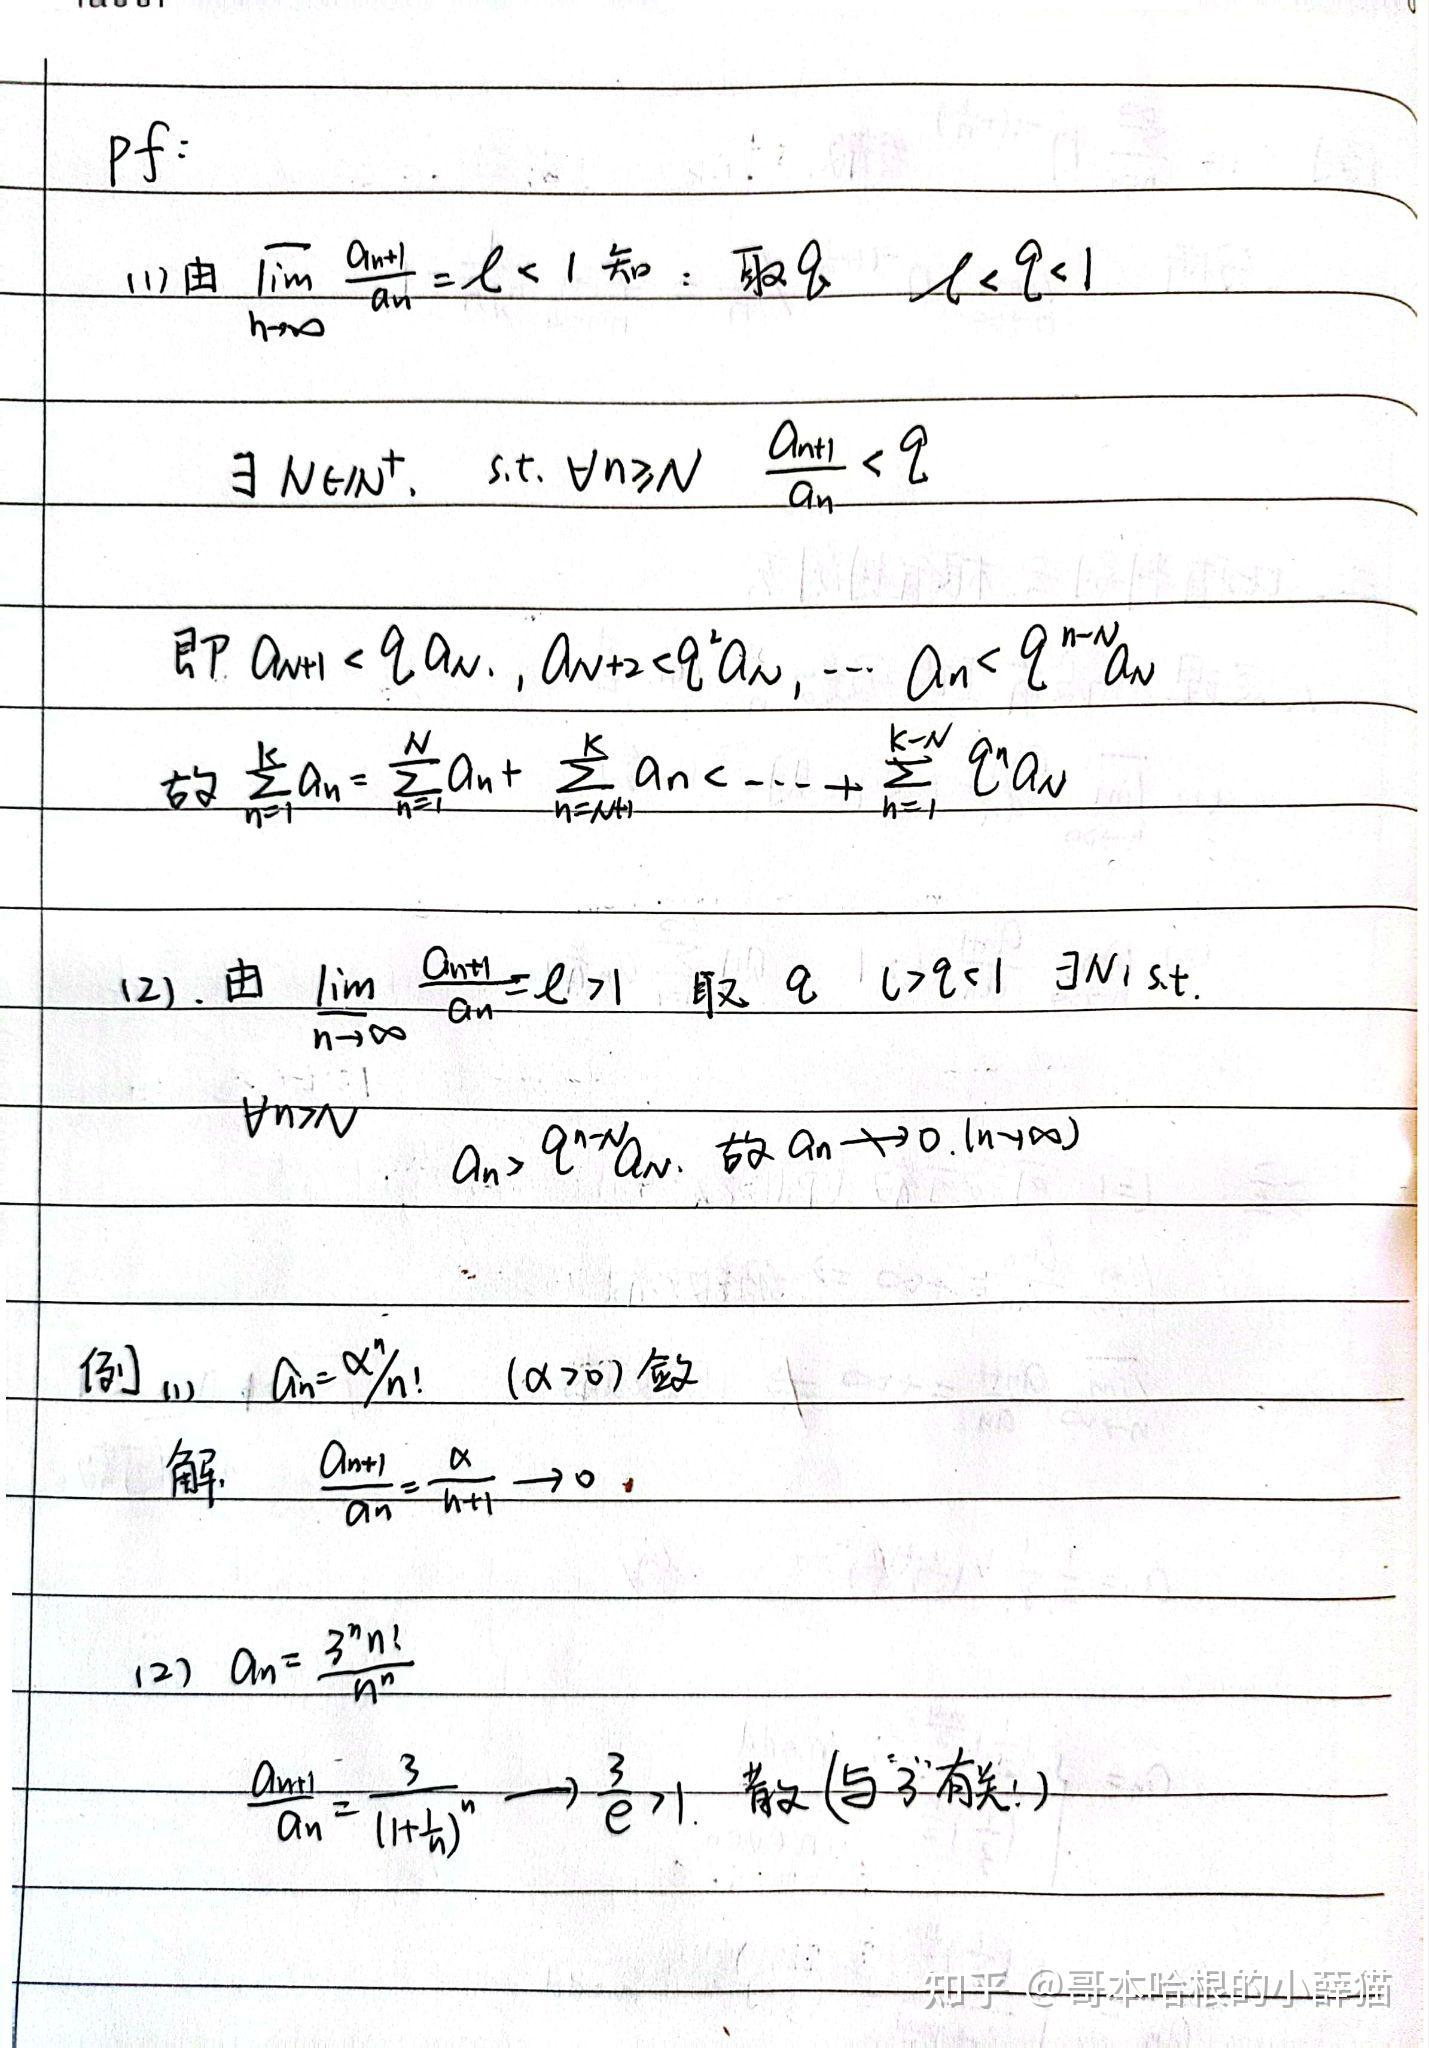 pf:
(1) 由 \overline{lim}_{n→∞} a_{n+1}/a_n = l < 1 知: 取q l < q < 1
∃ N∈ℕ⁺, s.t. ∀n≥N a_{n+1}/a_n < q
即 a_{N+1} < q a_N., a_{N+2} < q² a_N, ... a_n < q^{n-N} a_N
故 ∑_{n=1}^{K} a_n = ∑_{n=1}^{N} a_n + ∑_{n=N+1}^{K} a_n < ---- + ∑_{n=1}^{K-N} qⁿ a_N
(2). 由 \underline{lim}_{n→∞} a_{n+1}/a_n = l > 1 取 q l > q < 1 ∃N, s.t.
∀n>N
a_n > q^{n-N} a_N. 故 a_n ↛ 0. (n→∞)
例 (1) a_n = αⁿ/n! (α>0) 敛
解. a_{n+1}/a_n = α/(n+1) → 0
(2) a_n = 3ⁿn!/nⁿ
a_{n+1}/a_n = 3/(1+1/n)ⁿ → 3/e > 1. 散 (与"3"有关!)
知乎 @哥本哈根的小薛猫